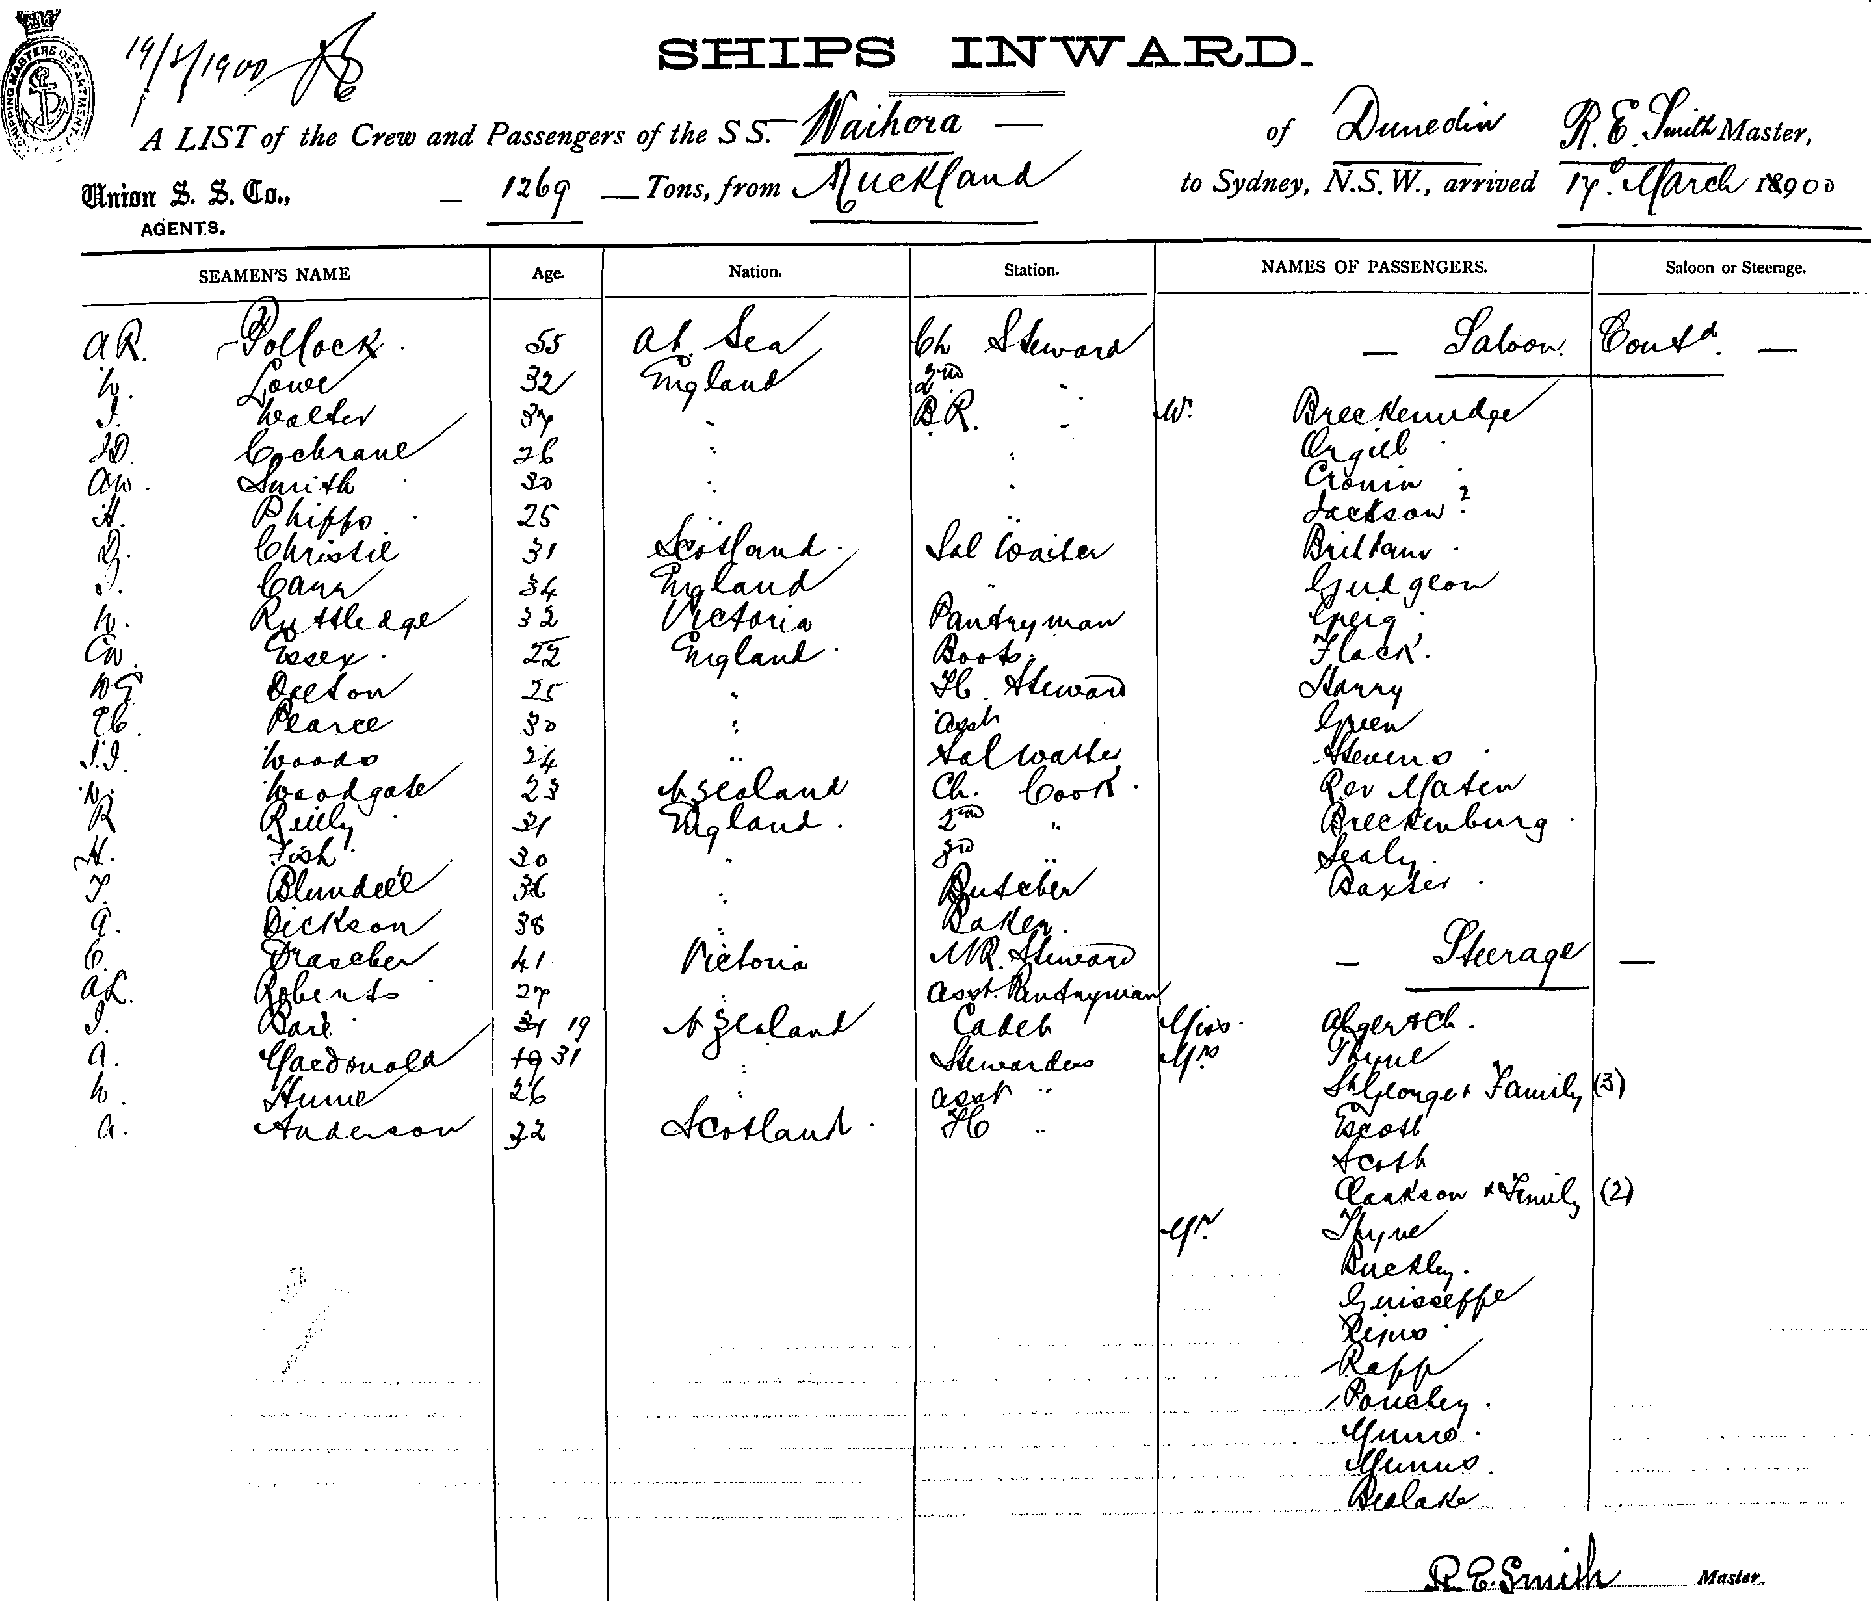 SHIPPING MASTERS DEPARTMENT
19/3/1900
SHIPS INWARD.
A LIST of the Crew and Passengers of the S S. Waihora — of Dunedin R. E. Smith Master,
Union S. S. Co., AGENTS. — 1269 — Tons, from Auckland to Sydney, N.S.W., arrived 17 March 1900
SEAMEN'S NAME Age. Nation. Station. NAMES OF PASSENGERS. Saloon or Steerage.
A R. Pollock 55 At Sea Ch Steward — Saloon Contd. —
W. Lowe 32 England 2nd "
Walter 37 " B.R. " W. Breckenridge
Cochrane 26 " " Orgill
AW. Smith 30 " " Cronin
H. Phipps 25 " " Jackson ?
Christie 31 Scotland Sal Waiter Brittain
Carr 34 England " Gudgeon
W. Ruttledge 32 Victoria Pantryman Greig
CW. Essex 22 England Boots Flack
Deeton 25 " FC Steward Harry
Pearce 30 " Asst Green
Woods 24 " Sal Waiter Stevens
W. Woodgate 23 N Zealand Ch. Cook Rev Maten
R Reilly 31 England 2nd " Breckenburg
H. Fish 30 " 3rd " Sealy
T. Blundell 36 " Butcher Baxter
A. Dickson 38 " Baker
C. Drascher 41 Victoria MR. Steward — Steerage —
A L. Roberts 27 " Asst. Pantryman
31 19 N Zealand Cadet Miss
A. Macdonald 19 31 " Stewardess Mrs Thyne
W. Hume 26 " Asst " St George & Family (3)
A. Anderson 32 Scotland FC " Escott
Scott
Clarkson & Family (2)
Mr. Thyne
Buckley.
Guisseffe
Rapp
Pouchy.
Munro.
Munro.
Beslake
R. E. Smith Master.